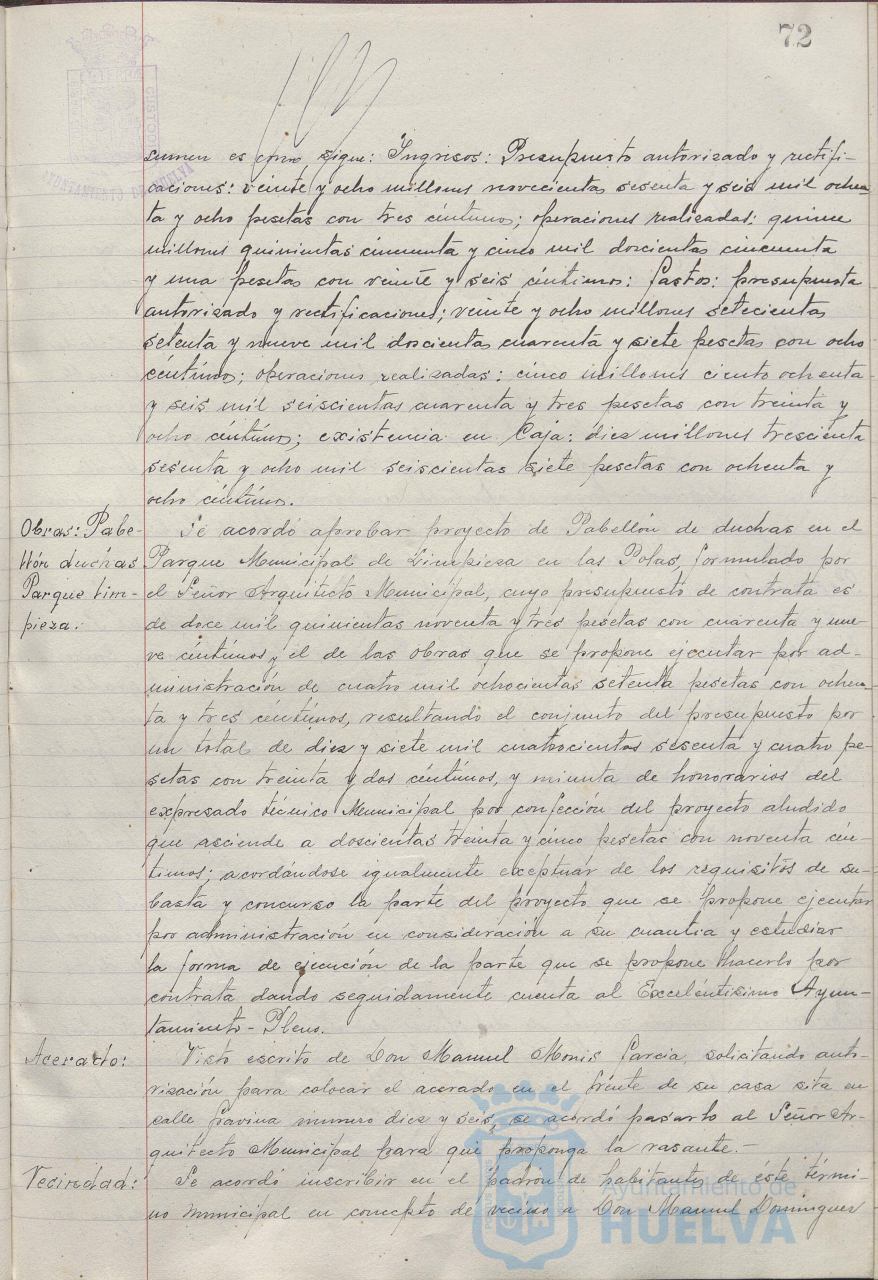 72
sumen es como sigue: Ingresos: Presupuesto autorizado y rectifi-
caciones: veinte y ocho millones novecientas sesenta y seis mil ochen-
ta y ocho pesetas con tres céntimos; operaciones realizadas: quince
millones quinientas cincuenta y cinco mil doscientas cincuenta
y una pesetas con veinte y seis céntimos: Gastos: presupuesto
autorizado y rectificaciones; veinte y ocho millones setecientas
setenta y nueve mil doscientas cuarenta y siete pesetas con ocho
céntimos; operaciones realizadas: cinco millones ciento ochenta
y seis mil seiscientas cuarenta y tres pesetas con treinta y
ocho céntimos; existencia en Caja: diez millones trescienta
sesenta y ocho mil seiscientas siete pesetas con ochenta y
ocho céntimos.
Obras: Pabe-
llón duchas
Parque lim-
pieza.
Se acordó aprobar proyecto de Pabellón de duchas en el
Parque Municipal de Limpieza en las Polas, formulado por
el Señor Arquitecto Municipal, cuyo presupuesto de contrata es
de doce mil quinientas noventa y tres pesetas con cuarenta y nue-
ve céntimos y el de las obras que se propone ejecutar por ad-
ministración de cuatro mil ochocientas setenta pesetas con ochen-
ta y tres céntimos, resultando el conjunto del presupuesto por
un total de diez y siete mil cuatrocientos sesenta y cuatro pe-
setas con treinta y dos céntimos, y minuta de honorarios del
expresado técnico Municipal por confección del proyecto aludido
que asciende a doscientas treinta y cinco pesetas con noventa cén-
timos; acordándose igualmente exceptuar de los requisitos de su-
basta y concurso la parte del proyecto que se propone ejecutar
por administración en consideración a su cuantia y estudiar
la forma de ejecución de la parte que se propone hacerlo por
contrata dando seguidamente cuenta al Excelentísimo Ayun-
tamiento-Pleno.
Acerado:
Visto escrito de Don Manuel Monis Garcia, solicitando auto-
rización para colocar el acerado en el frente de su casa sita en
calle Gravina numero diez y seis, se acordó pasarlo al Señor Ar-
quitecto Municipal para que proponga la rasante.-
Vecindad:
Se acordó inscribir en el padrón de habitantes de éste térmi-
no municipal en concepto de vecino a Don Manuel Dominguez
Ayuntamiento de
HUELVA